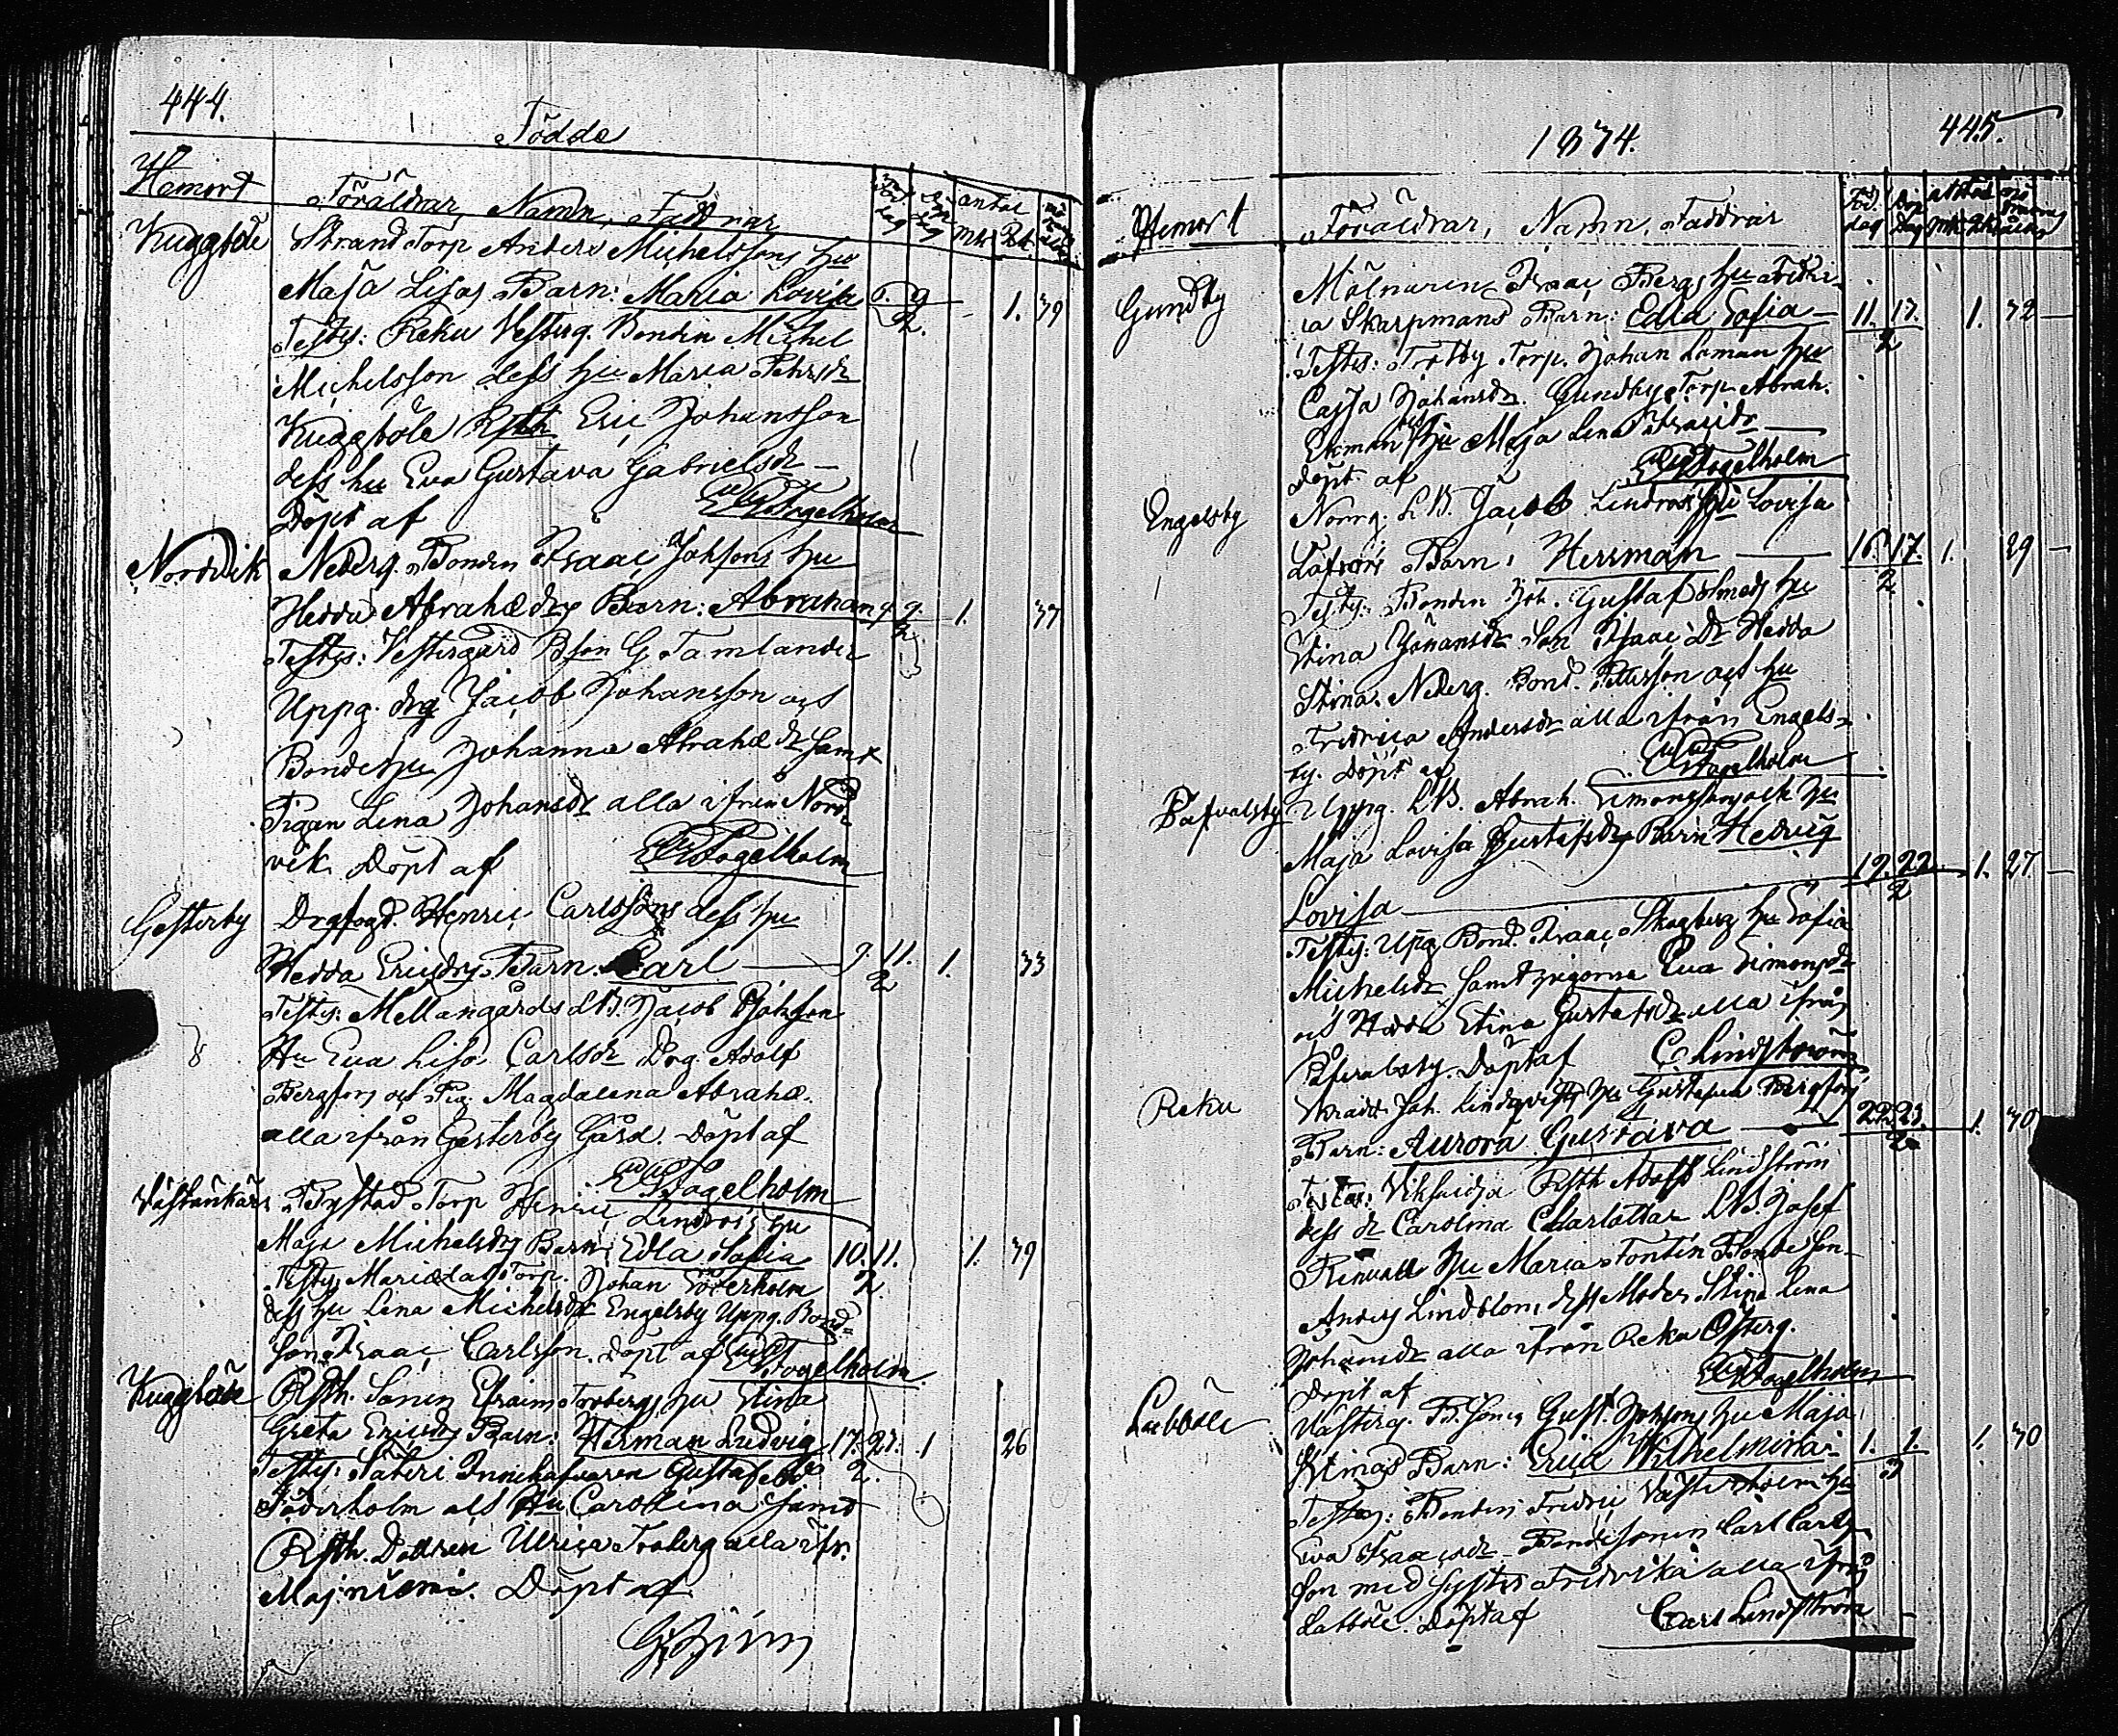 444.
Födde
Hemort
Föräldrar, Namn, Faddrar
antal
Mk. Qk.
Kuggböle
Strand Torp Anders Michelssons hu
Maja Lisas Barn: Maria Lovisa 6. 9 1. 39
2.
Testes: Reku Vesterg. Bonden Michel
Michelsson dess hu Maria Pehrsdr
Kuggböle Rsth Eric Johansson
dess hu Eva Gustava Gabrielsdr
Döpt af Fogelholm
Nordvik
Nederg. Bonden Isaac Johssons hu
Hedda Abrahs drs Barn: Abraham 4 9. 1. 37
2
Testes: Vestergård Bson G Tamlander
Uppg. drg Jacob Johansson och
Bonde hu Johanna Abrahs dr samt
Pigan Lena Johansdr alla ifrån Nord-
vik. Döpt af Fogelholm
Gesterby
Drgfogd. Henric Carlssons dess hu
Hedda Ericsdrs Barn: Carl 9. 11. 1. 33
2
Testes: Mellangårds LB. Jacob Johsson
Hu Eva Lisa Carlsdr Drg. Adolf
Bergfors och Pig. Magdalena Abrahs.
alla ifrån Gesterby Gård. Döpt af
Fogelholm
Västankärr
Bystad Torp Henric Lindroos hu
Maja Michelsdrs Barn: Edla Sofia 10. 11. 1. 39
Testes: Torp. Johan Söderholm 2
dess hu Lena Michelsdr Engelsby Uppg. Bond-
son Isaac Carlsson. Döpt af Fogelholm
Kuggböle
Rsth. Sonen Efraim Frobergs hu Stina
Greta Ericsdrs Barn: Herman Ludvig 17. 27. 1 26
Testes: Säteri Innehafvaren Gustaf 2.
Söderholm och Hu Carolina samt
Rsth. Dottren Ulrica Froberg alla ifr.
Majniemi. Döpt af
1874. 445.
Hemort
Föräldrar, Namn, Faddrar
Föd. dag
Dop Dag
Gundby
Mölnaren Isaac Bergs hu Fredri-
ca Skarpmans Barn: Edla Sofia 11. 17. 1. 32
2
Testes: Torp. Johan Loman hu
Cajsa Johansdr. Gundby Torp. Abrah.
Ekman hu Maja Lena Isacsdr
Döpt af Fogelholm
Engelsby
Norrg. LB. Jacob Lindroos hu Lovisa
Barn: Herrman 16. 17. 1. 29
2
Testes: Bonden Joh. Gustaf hu
Stina Johansdr Son Isaac Dr Hedda
Stina. Nederg. Bond. Pettersson och hu
Fredrica Andersdr alla ifrån Engels-
by. Döpt af Fogelholm
Pafvalsby
Uppg. LB. Abrah. Simonssons och hu
Maja Lovisa Gustafsdrs Barn Hedvig
19. 22 1. 27.
Lovisa 2
Testes: Uppg Bond. Isaac Skogberg hu Sofia
Michelsdr samt pigorna Eva Simonsdr
och Hedda Stina Gustafsdr alla ifrån
Pafvalsby. Döpt af C. Lindström
Reku
Skradd. Joh. Lindqvists hu Gustafva Bergfors
Barn: Aurora Gustava 22. 23. 1. 30
2
Testes: Viksvidja Rsth Adolf Lindström
dess dr Carolina Charlotta LB. Josef
Renvall hu Maria Fontin Bonde son
Anders Lindblom, dess Moder Stina Lena
Johansdr alla ifrån Reku Österg.
Döpt af Fogelholm
Labböle
Västerg. B. Sonen Gust. Johssons hu Maja
Barn: Erica Wilhelmina 1. 1. 1. 30
3
Testes: Bonden Fredric Västerholm hu
Eva Isaacsdr Bondesonen Carl Carls-
son med syster Fredrika alla ifrån
Labböle. Döpt af Carl Lindström